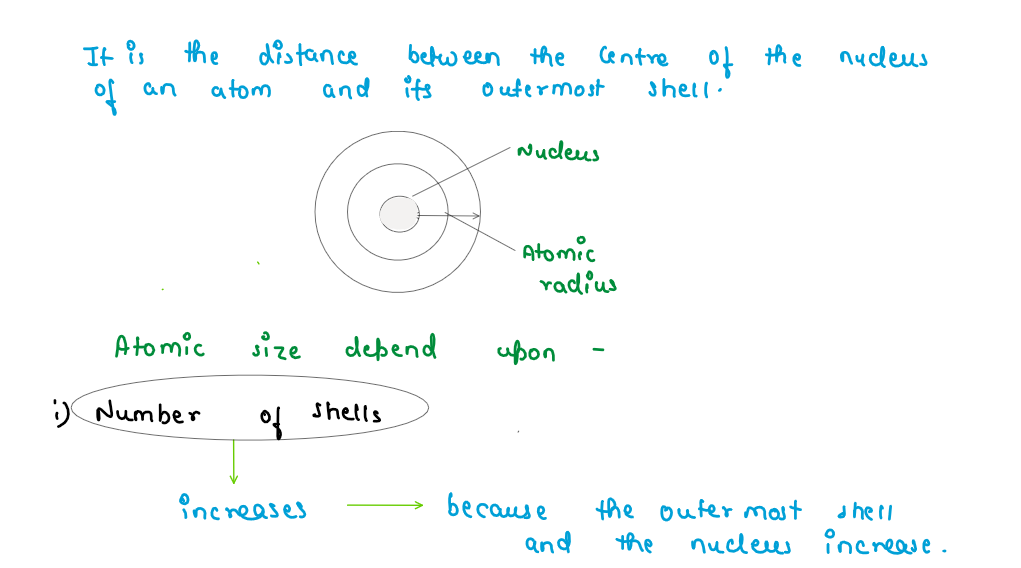 It is the distance between the centre of the nucleus
of an atom and its outermost shell.
Nucleus
Atomic
radius
Atomic size depend upon -
i) Number of shells
increases → because the outermost shell
and the nucleus increase.